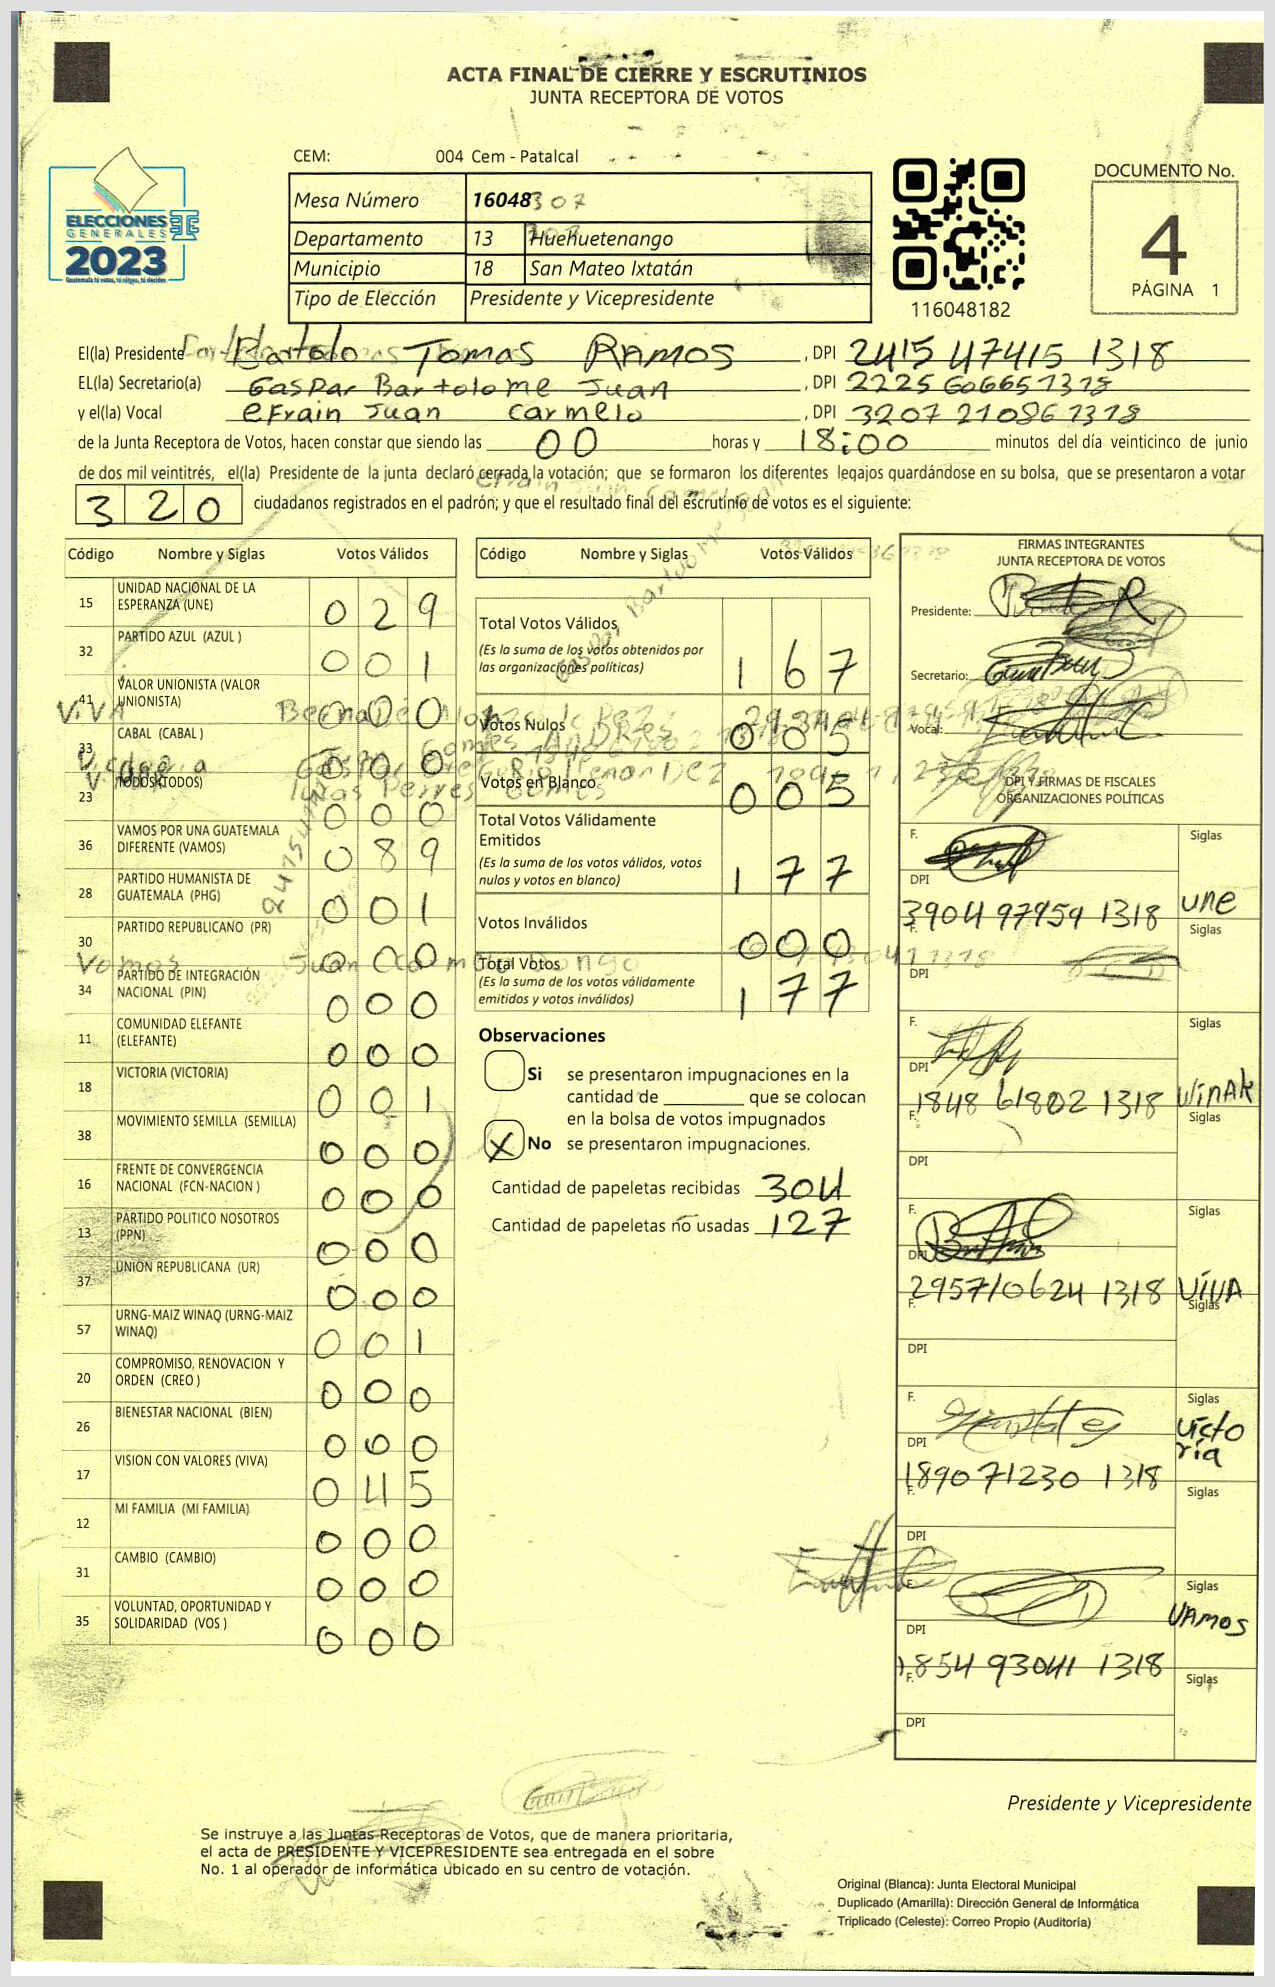 ACTA FINAL DE CIERRE Y ESCRUTINIOS
JUNTA RECEPTORA DE VOTOS
ELECCIONES
GENERALES
2023
Guatemala tú votas, tú eliges, tú decides
CEM: 004 Cem - Patalcal
Mesa Número 16048
Departamento 13 Huehuetenango
Municipio 18 San Mateo Ixtatán
Tipo de Elección Presidente y Vicepresidente
116048182
DOCUMENTO No.
4
PÁGINA 1
El(la) Presidente Bartolo Tomas Ramos , DPI 2415 47415 1318
EL(la) Secretario(a) Gaspar Bartolome Juan , DPI 2225 60665 1318
y el(la) Vocal efrain Juan carmelo , DPI 3207 21086 1318
de la Junta Receptora de Votos, hacen constar que siendo las 00 horas y 18:00 minutos del día veinticinco de junio
de dos mil veintitrés, el(la) Presidente de la junta declaró cerrada la votación; que se formaron los diferentes legajos guardándose en su bolsa, que se presentaron a votar
320 ciudadanos registrados en el padrón; y que el resultado final del escrutinio de votos es el siguiente:
Código Nombre y Siglas Votos Válidos
15 UNIDAD NACIONAL DE LA ESPERANZA (UNE) 029
32 PARTIDO AZUL (AZUL ) 001
41 VALOR UNIONISTA (VALOR UNIONISTA) 000
33 CABAL (CABAL ) 000
23 TODOS (TODOS) 000
36 VAMOS POR UNA GUATEMALA DIFERENTE (VAMOS) 089
28 PARTIDO HUMANISTA DE GUATEMALA (PHG) 001
30 PARTIDO REPUBLICANO (PR) 000
34 PARTIDO DE INTEGRACIÓN NACIONAL (PIN) 000
11 COMUNIDAD ELEFANTE (ELEFANTE) 000
18 VICTORIA (VICTORIA) 001
38 MOVIMIENTO SEMILLA (SEMILLA) 000
16 FRENTE DE CONVERGENCIA NACIONAL (FCN-NACION ) 000
13 PARTIDO POLITICO NOSOTROS (PPN) 000
37 UNION REPUBLICANA (UR) 000
57 URNG-MAIZ WINAQ (URNG-MAIZ WINAQ) 001
20 COMPROMISO, RENOVACION Y ORDEN (CREO ) 000
26 BIENESTAR NACIONAL (BIEN) 000
17 VISION CON VALORES (VIVA) 045
12 MI FAMILIA (MI FAMILIA) 000
31 CAMBIO (CAMBIO) 000
35 VOLUNTAD, OPORTUNIDAD Y SOLIDARIDAD (VOS ) 000
Código Nombre y Siglas Votos Válidos
Total Votos Válidos 167
(Es la suma de los votos obtenidos por
las organizaciones políticas)
Votos Nulos 005
Votos en Blanco 005
Total Votos Válidamente
Emitidos 177
(Es la suma de los votos válidos, votos
nulos y votos en blanco)
Votos Inválidos 000
Total Votos 177
(Es la suma de los votos válidamente
emitidos y votos inválidos)
Observaciones
Si se presentaron impugnaciones en la
cantidad de ________ que se colocan
en la bolsa de votos impugnados
X No se presentaron impugnaciones.
Cantidad de papeletas recibidas 304
Cantidad de papeletas no usadas 127
FIRMAS INTEGRANTES
JUNTA RECEPTORA DE VOTOS
Presidente:
Secretario:
Vocal:
DPI Y FIRMAS DE FISCALES
ORGANIZACIONES POLÍTICAS
F. Siglas
DPI 3904 97959 1318 une
F. Siglas
DPI
F. Siglas
DPI 1848 61802 1318 WinAk
F. Siglas
DPI
F. Siglas
DPI 2957 10624 1318 VIVA
F. Siglas
DPI
F. Siglas
DPI 1890 71230 1318 victo
ria
F. Siglas
DPI
F. Siglas
DPI 1854 93041 1318 VAmos
F. Siglas
DPI
Presidente y Vicepresidente
Se instruye a las Juntas Receptoras de Votos, que de manera prioritaria,
el acta de PRESIDENTE Y VICEPRESIDENTE sea entregada en el sobre
No. 1 al operador de informática ubicado en su centro de votación.
Original (Blanca): Junta Electoral Municipal
Duplicado (Amarilla): Dirección General de Informática
Triplicado (Celeste): Correo Propio (Auditoría)